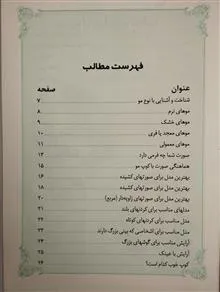 فهرست مطالب
عنوان صفحه
شناخت و آشنایی با نوع مو ۷
موهای نرم ۸
موهای خشک ۹
موهای مجعد یا فری ۱۰
موهای معمولی ۱۱
صورت شما چه فرمی دارد ۱۲
هماهنگی صورت با کوپ مو ۱۵
بهترین مدل برای صورتهای کشیده ۱۶
بهترین مدل برای صورتهای کشیده ۱۸
بهترین مدل برای صورتهای زاویه‌دار (مربع) ۲۰
مدلهای مناسب برای گردنهای بلند ۲۱
مدل مناسب برای گردنهای کوتاه ۲۲
مدل مناسب برای اشخاصی که بینی بزرگ دارند ۲۳
آرایش مناسب برای گوشهای بزرگ ۲۴
آرایش با عینک ۲۵
کوپ خوب کدام است؟